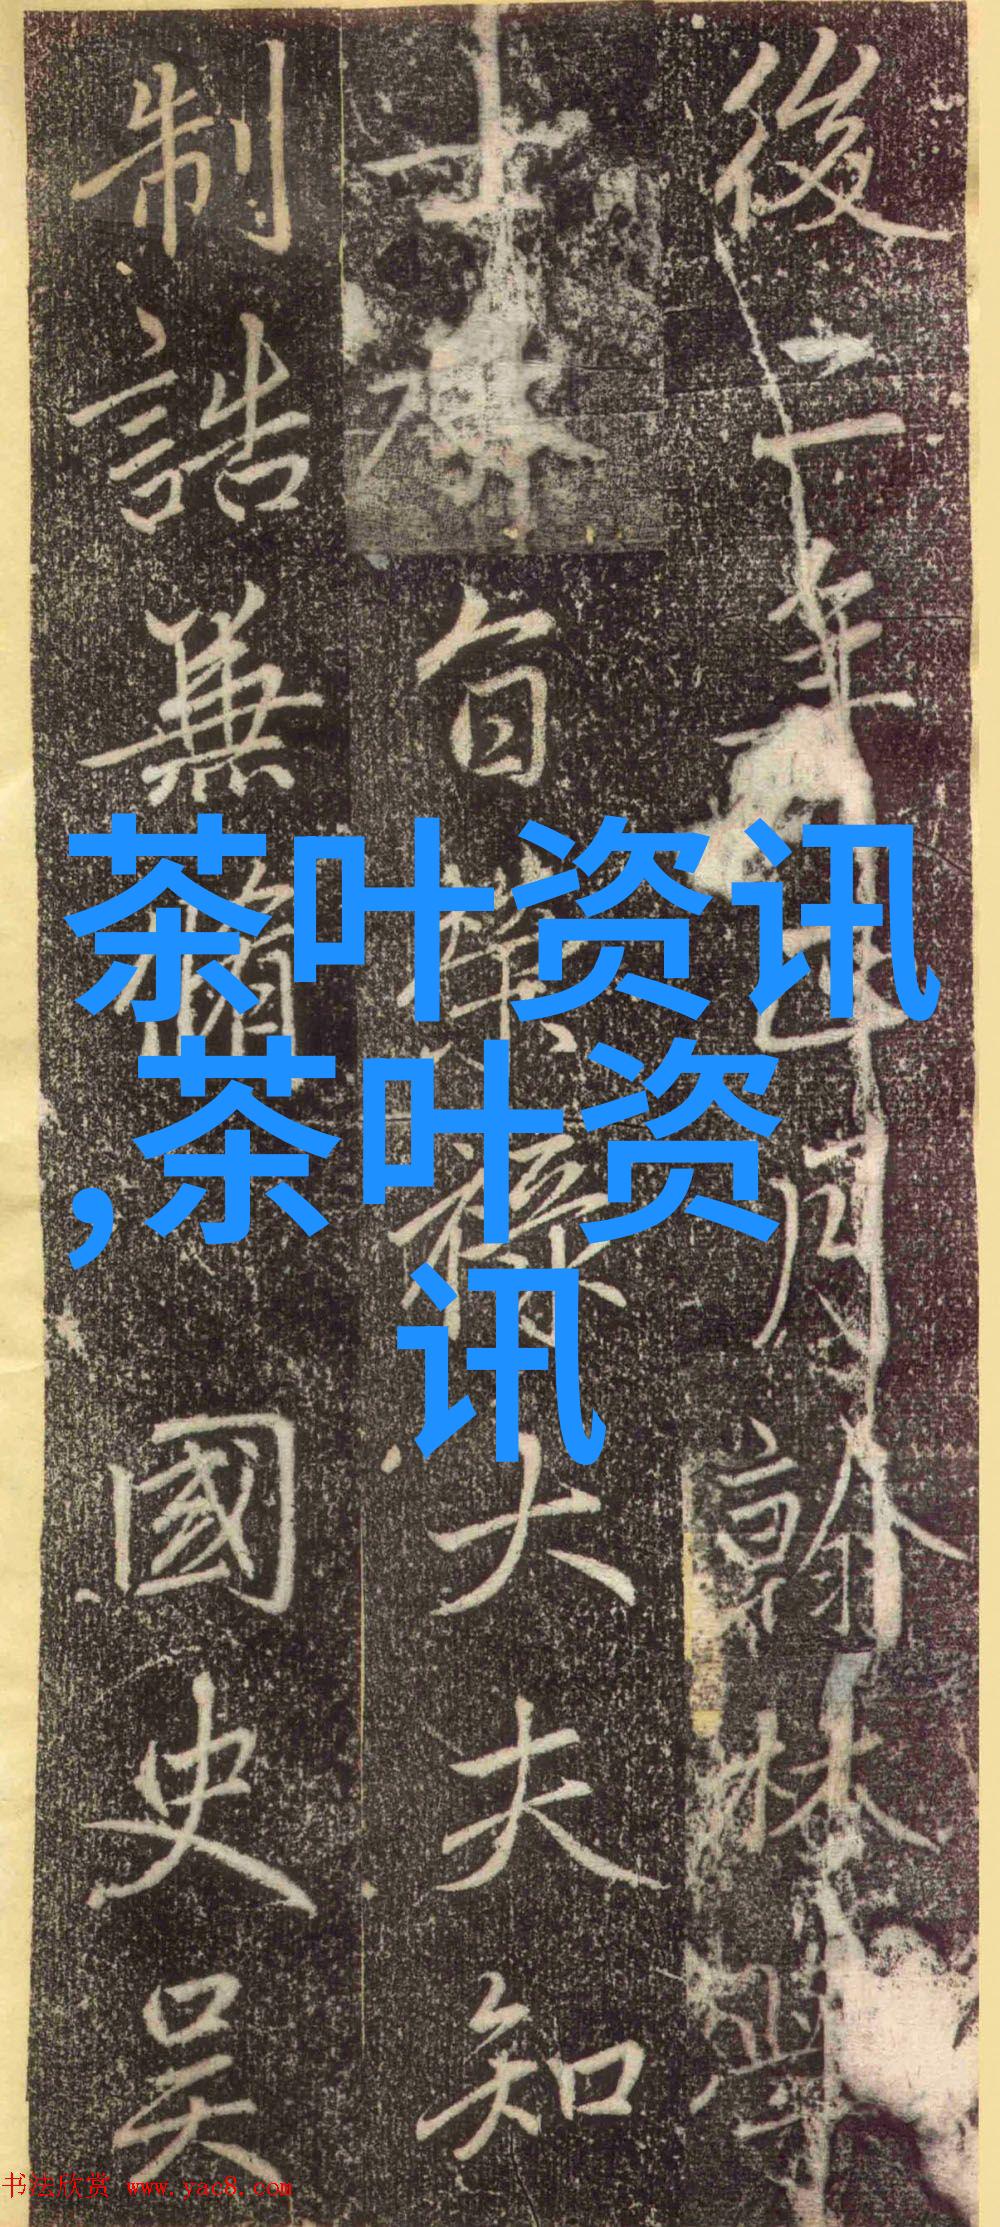 後二年月翰林學
士承旨榮祿大夫知
制誥兼脩國史吴
茶叶资讯
,茶叶资
讯
书法欣赏 www.yac8.com